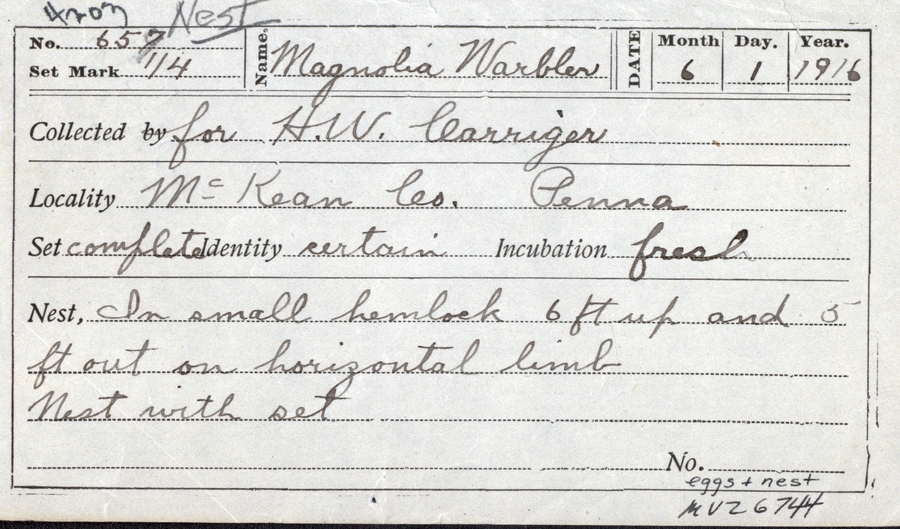 4703 Nest
No. 657 Name. Magnolia Warbler DATE Month Day. Year.
Set Mark 1/4 6 1 1916
Collected by for H.W. Carriger
Locality Mc Kean Co. Penna
Set complete Identity certain Incubation fresh
Nest, In small hemlock 6 ft up and 5
ft out on horizontal limb
Nest with set
No.
eggs + nest
MVZ 6744